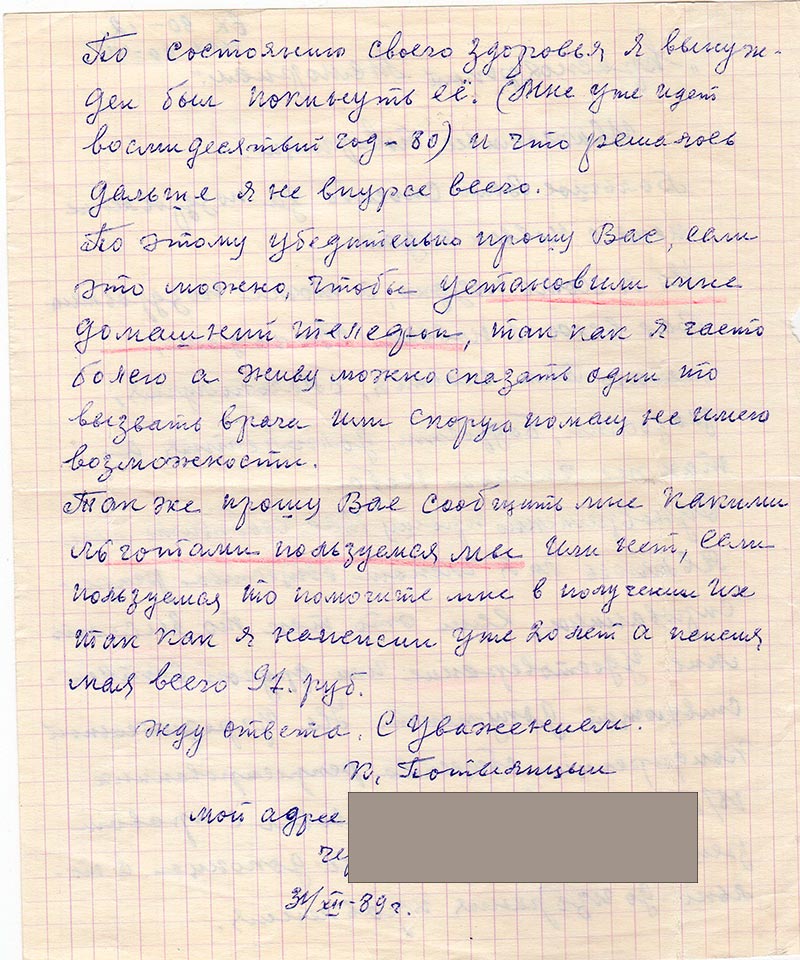 По состоянию своего здоровья я вынуж-
ден был покинуть её. (Мне уже идет
восмидесятый год – 80) и что решалось
дальше я не вкурсе всего.
По этому убедительно прошу Вас, если
это можно, чтобы установили мне
домашний телефон, так как я часто
болею а живу можно сказать один то
вызвать врача или скорую помащ не имею
возможности.
Так же прошу Вас сообщить мне какими
льготами пользуемся мы или нет, если
пользуемся то помочите мне в получении их
так как я напенсии уже 20 лет а пенсия
мая всего 97. руб.
Жду ответа. С Уважением.
К,
мой адрес
чер
31/XII-89 г.